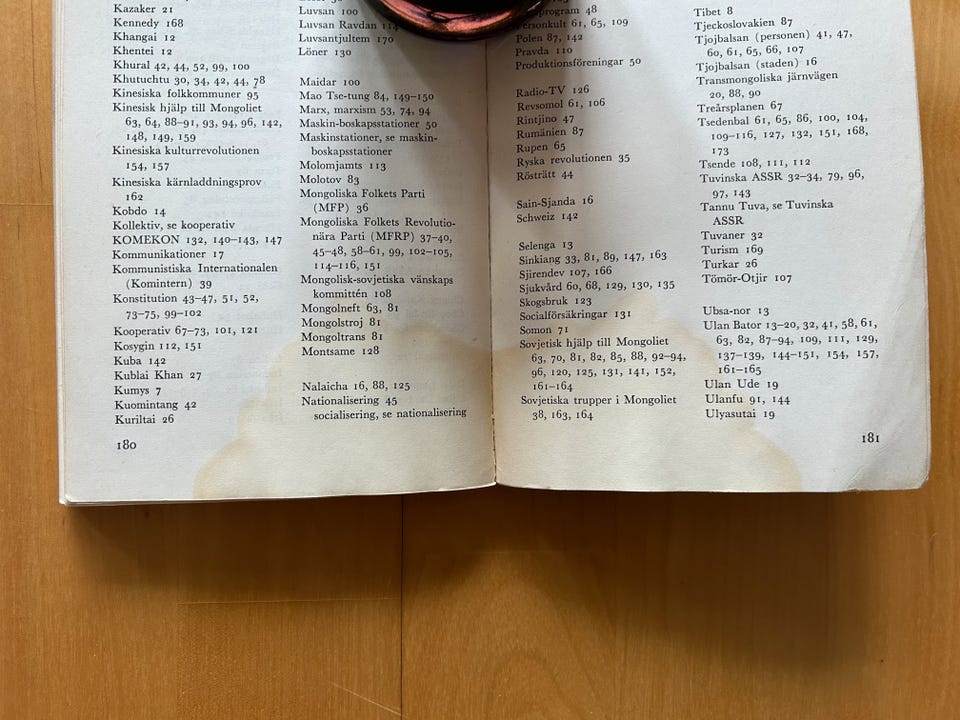 Kazaker 21
Kennedy 168
Khangai 12
Khentei 12
Khural 42, 44, 52, 99, 100
Khutuchtu 30, 34, 42, 44, 78
Kinesiska folkkommuner 95
Kinesisk hjälp till Mongoliet
63, 64, 88–91, 93, 94, 96, 142,
148, 149, 159
Kinesiska kulturrevolutionen
154, 157
Kinesiska kärnladdningsprov
162
Kobdo 14
Kollektiv, se kooperativ
KOMEKON 132, 140–143, 147
Kommunikationer 17
Kommunistiska Internationalen
(Komintern) 39
Konstitution 43–47, 51, 52,
73–75, 99–102
Kooperativ 67–73, 101, 121
Kosygin 112, 151
Kuba 142
Kublai Khan 27
Kumys 7
Kuomintang 42
Kuriltai 26
180
Luvsan 100
Luvsan Ravdan
Luvsantjultem 170
Löner 130
Maidar 100
Mao Tse-tung 84, 149–150
Marx, marxism 53, 74, 94
Maskin-boskapsstationer 50
Maskinstationer, se maskin-
boskapsstationer
Molomjamts 113
Molotov 83
Mongoliska Folkets Parti
(MFP) 36
Mongoliska Folkets Revolutio-
nära Parti (MFRP) 37–40,
45–48, 58–61, 99, 102–105,
114–116, 151
Mongolisk-sovjetiska vänskaps
kommittén 108
Mongolneft 63, 81
Mongolstroj 81
Mongoltrans 81
Montsame 128
Nalaicha 16, 88, 125
Nationalisering 45
socialisering, se nationalisering
48
61, 65, 109
Polen 87, 142
Pravda 110
Produktionsföreningar 50
Radio-TV 126
Revsomol 61, 106
Rintjino 47
Rumänien 87
Rupen 65
Ryska revolutionen 35
Rösträtt 44
Sain-Sjanda 16
Schweiz 142
Selenga 13
Sinkiang 33, 81, 89, 147, 163
Sjirendev 107, 166
Sjukvård 60, 68, 129, 130, 135
Skogsbruk 123
Socialförsäkringar 131
Somon 71
Sovjetisk hjälp till Mongoliet
63, 70, 81, 82, 85, 88, 92–94,
96, 120, 125, 131, 141, 152,
161–164
Sovjetiska trupper i Mongoliet
38, 163, 164
Tibet 8
Tjeckoslovakien 87
Tjojbalsan (personen) 41, 47,
60, 61, 65, 66, 107
Tjojbalsan (staden) 16
Transmongoliska järnvägen
20, 88, 90
Treårsplanen 67
Tsedenbal 61, 65, 86, 100, 104,
109–116, 127, 132, 151, 168,
173
Tsende 108, 111, 112
Tuvinska ASSR 32–34, 79, 96,
97, 143
Tannu Tuva, se Tuvinska
ASSR
Tuvaner 32
Turism 169
Turkar 26
Tömör-Otjir 107
Ubsa-nor 13
Ulan Bator 13–20, 32, 41, 58, 61,
63, 82, 87–94, 109, 111, 129,
137–139, 144–151, 154, 157,
161–165
Ulan Ude 19
Ulanfu 91, 144
Ulyasutai 19
181